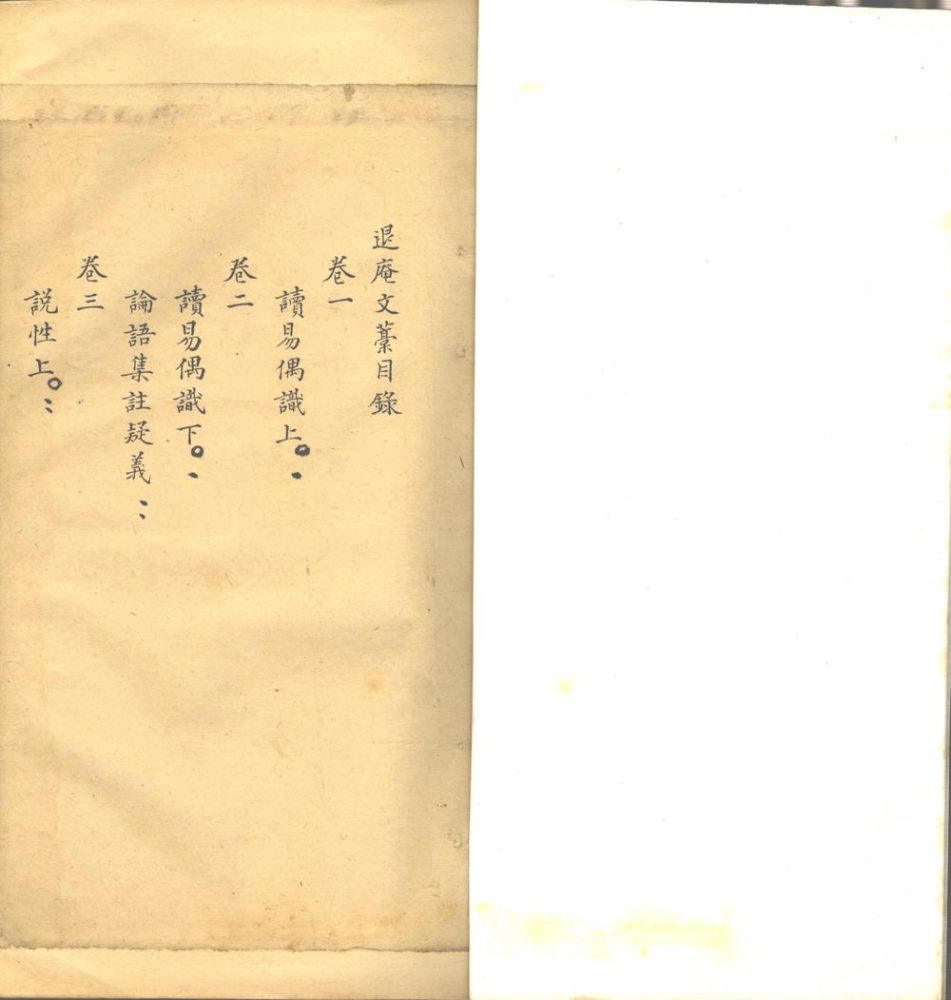 退庵文藁目錄
卷一
讀易偶識上。、
卷二
讀易偶識下。、
論語集註疑義、、
卷三
説性上。、、